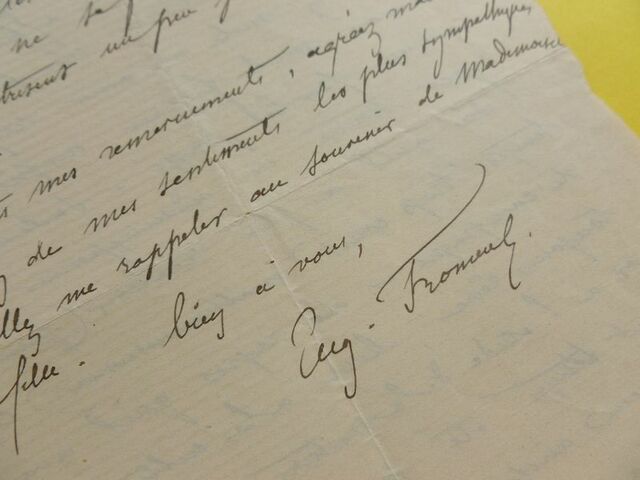 ne se
un peu
mes remerciements, agréez ma
de mes sentiments les plus sympathiques
me rappeler au souvenir de Mademoise
fille. bien à vous,
Eug. Froment.